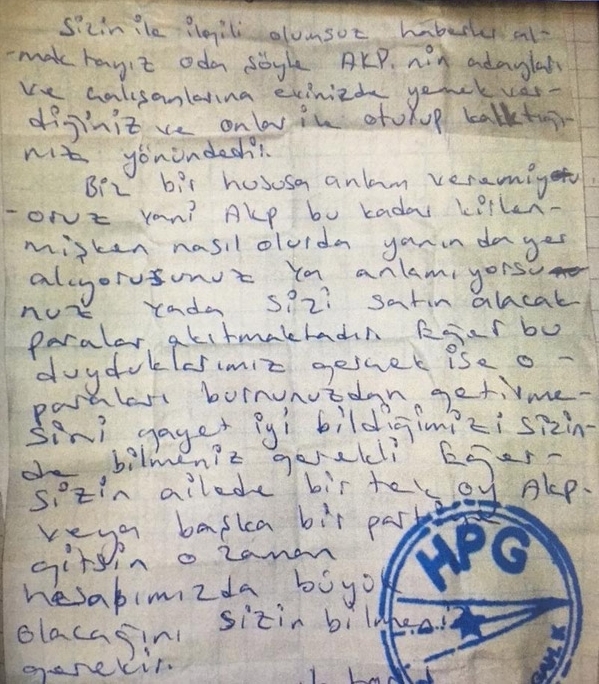 Sizin ile ilgili olumsuz haberler al-
-maktayız oda şöyle AKP.nin adayları
ve çalışanlarına evinizde yemek ver-
diğiniz ve onlar ile oturup kalktığı-
nız yönündedir.
Biz bir hususa anlam veremiy
-oruz yani Akp bu kadar kirlen-
mişken nasıl olurda yanında yer
alıyorsunuz ya anlamıyorsu
nuz yada sizi satın alacak
paralar akıtmaktadır Eğer bu
duyduklarımız gerçek ise o -
paraları burnunuzdan getirme-
sini gayet iyi bildiğimizi sizin-
de bilmeniz gerekli Eğer-
sizin ailede bir tek oy Akp-
veya başka bir
gitsin o zaman
hesabımızda büyük
olacağını sizin bilmeniz
gerekir.
HPG